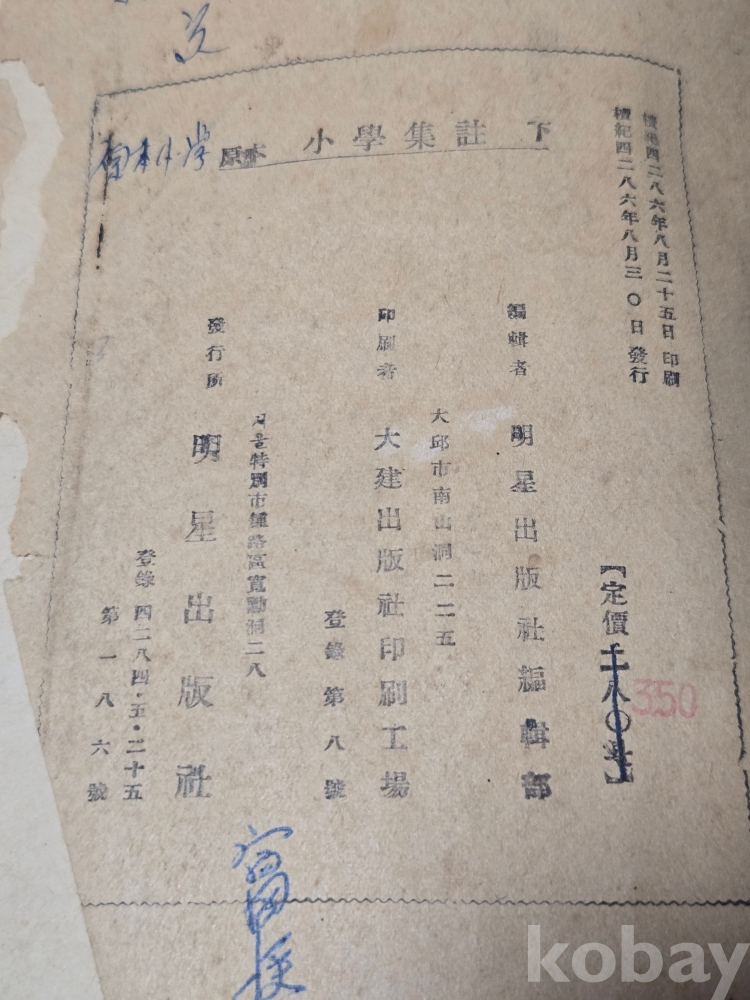 檀紀四二八六年八月二十五日 印刷
檀紀四二八六年八月三〇日 發行
原本 小學集註 下
【定價
350
編輯者 明星出版社編輯部
大邱市南山洞二二五
印刷者 大建出版社印刷工場
登錄第八號
서울特別市鍾路區寬勳洞二八
發行所 明星出版社
登錄四二八四·五·二十五
第一八六號
kobay